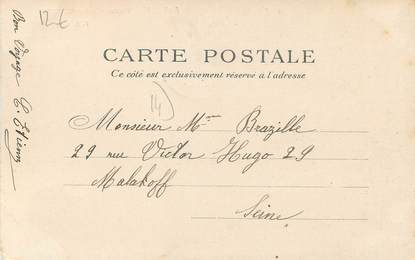 12 €
Bon Voyage E. Etienne
CARTE POSTALE
Ce côté est exclusivement réservé à l'adresse
14
Monsieur Mme Brazille
29 rue Victor Hugo 29
Malakoff
Seine